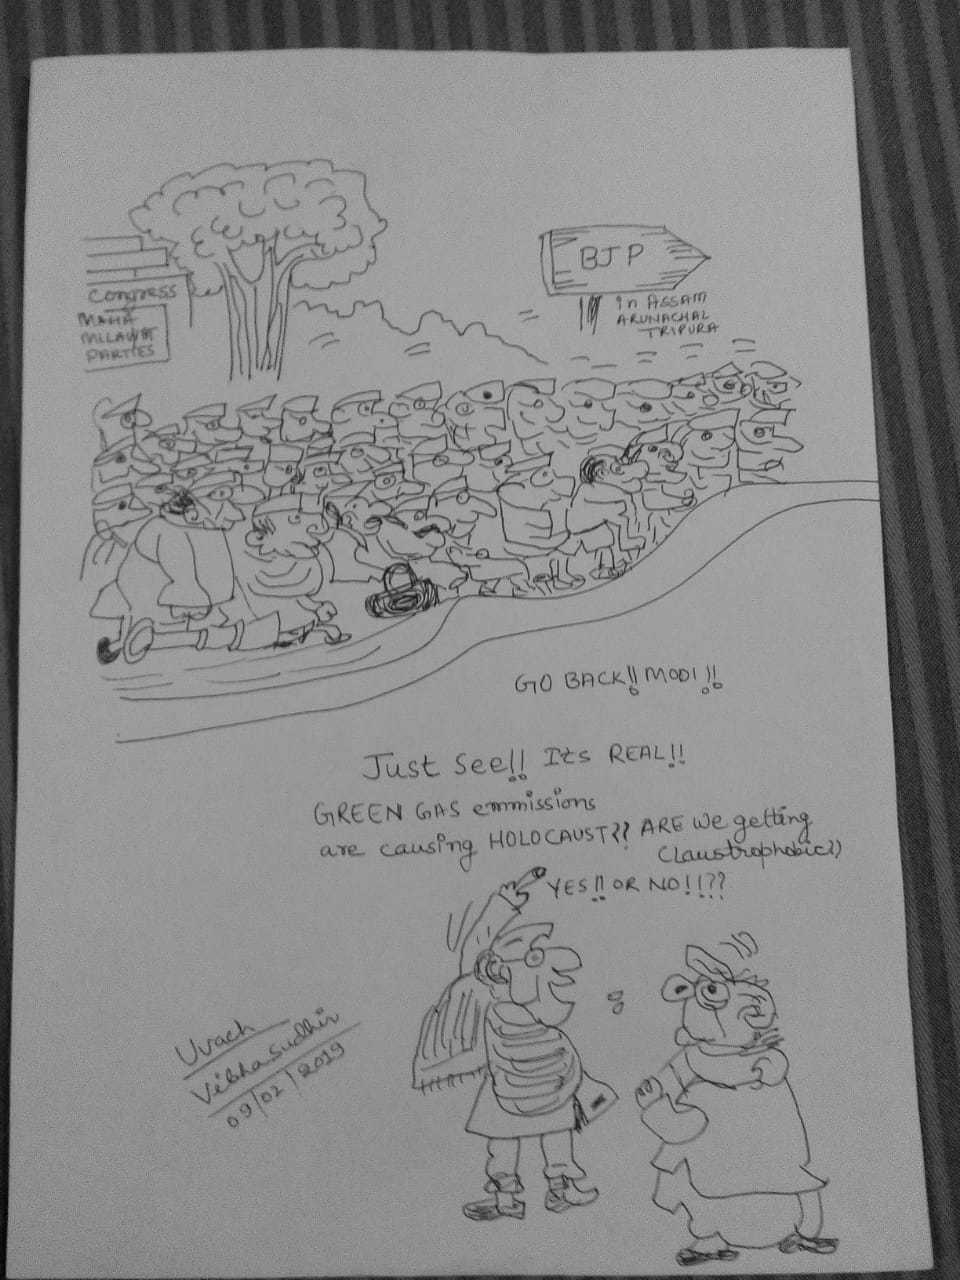 Congress
MAHA
MILAWAT
PARTIES
BJP
in ASSAM
ARUNACHAL
TRIPURA
GO BACK!! MODI!!
Just see!! Its REAL!!
GREEN GAS emmissions
are causing HOLOCAUST?? ARE we getting
Claustrophobic??
YES!! OR NO!!??
Uvach
VibhaSudhir
09/02/2019